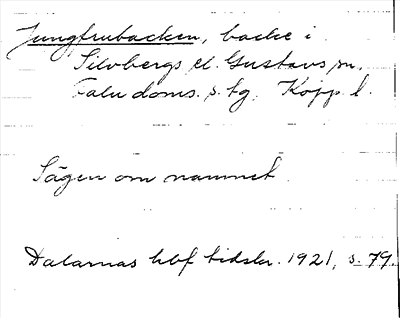 Jungfrubacken, backe i
Silvbergs el. Gustavs sn,
Falu doms. s. tg. Kopp. l.
Sägen om namnet
Dalarnas hbf tidskr. 1921, s. 79.